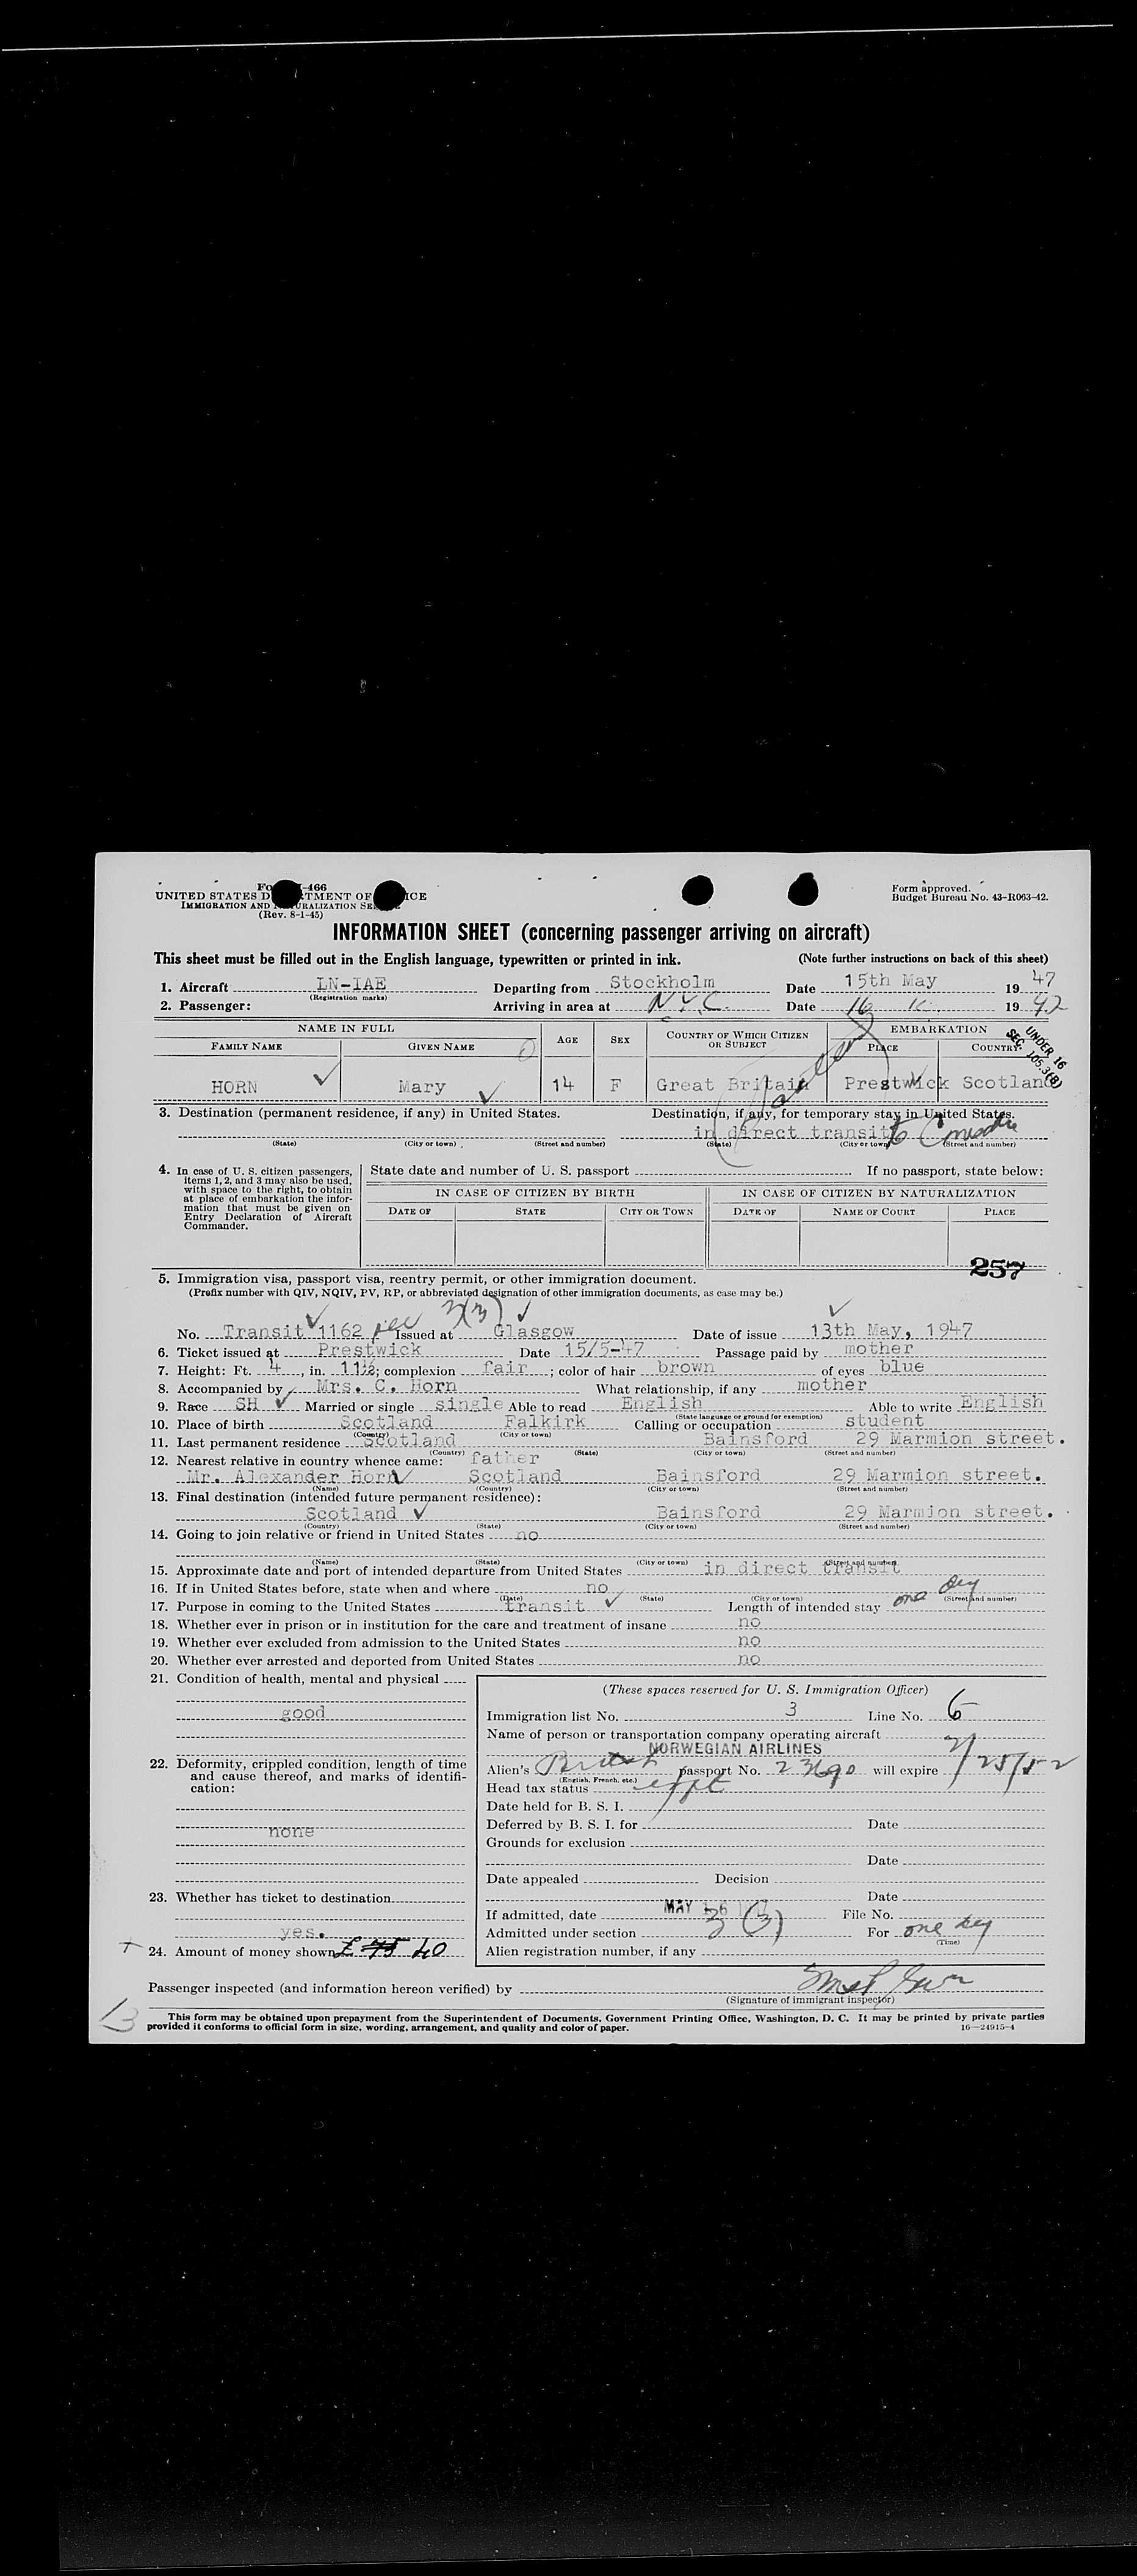 Form I-466
UNITED STATES DEPARTMENT OF JUSTICE
IMMIGRATION AND NATURALIZATION SERVICE
(Rev. 8-1-45)
Form approved.
Budget Bureau No. 43-R063-42.
INFORMATION SHEET (concerning passenger arriving on aircraft)
This sheet must be filled out in the English language, typewritten or printed in ink. (Note further instructions on back of this sheet)
1. Aircraft LN-IAE Departing from Stockholm Date 15th May 1947
(Registration marks)
2. Passenger: Arriving in area at N.Y.C. Date 16 1947
NAME IN FULL AGE SEX COUNTRY OF WHICH CITIZEN OR SUBJECT EMBARKATION
FAMILY NAME GIVEN NAME PLACE COUNTRY
UNDER 16
SEC. 105.3(B)
HORN Mary 14 F Great Britain Prestwick Scotland
3. Destination (permanent residence, if any) in United States. Destination, if any, for temporary stay in United States.
in direct transit to Canada
(State) (City or town) (Street and number) (State) (City or town) (Street and number)
4. In case of U. S. citizen passengers, items 1, 2, and 3 may also be used, with space to the right, to obtain at place of embarkation the information that must be given on Entry Declaration of Aircraft Commander.
State date and number of U. S. passport If no passport, state below:
IN CASE OF CITIZEN BY BIRTH IN CASE OF CITIZEN BY NATURALIZATION
DATE OF STATE CITY OR TOWN DATE OF NAME OF COURT PLACE
257
5. Immigration visa, passport visa, reentry permit, or other immigration document.
(Prefix number with QIV, NQIV, PV, RP, or abbreviated designation of other immigration documents, as case may be.)
3(3)
No. Transit 1162 Issued at Glasgow Date of issue 13th May, 1947
6. Ticket issued at Prestwick Date 15/5-47 Passage paid by mother
7. Height: Ft. 4, in. 11½; complexion fair; color of hair brown of eyes blue
8. Accompanied by Mrs. C. Horn What relationship, if any mother
9. Race SH Married or single single Able to read English Able to write English
(State language or ground for exemption)
10. Place of birth Scotland Falkirk Calling or occupation student
(Country) (City or town)
11. Last permanent residence Scotland Bainsford 29 Marmion street.
(Country) (State) (City or town) (Street and number)
12. Nearest relative in country whence came: father
Mr. Alexander Horn Scotland Bainsford 29 Marmion street.
(Name) (Country) (City or town) (Street and number)
13. Final destination (intended future permanent residence):
Scotland Bainsford 29 Marmion street.
(Country) (State) (City or town) (Street and number)
14. Going to join relative or friend in United States no
(Name) (State) (City or town) (Street and number)
15. Approximate date and port of intended departure from United States in direct transit
16. If in United States before, state when and where no
(Date) (State) (City or town) (Street and number)
17. Purpose in coming to the United States transit Length of intended stay one day
18. Whether ever in prison or in institution for the care and treatment of insane no
19. Whether ever excluded from admission to the United States no
20. Whether ever arrested and deported from United States no
21. Condition of health, mental and physical
good
22. Deformity, crippled condition, length of time and cause thereof, and marks of identification:
none
23. Whether has ticket to destination
yes.
24. Amount of money shown £ 75 40
(These spaces reserved for U. S. Immigration Officer)
Immigration list No. 3 Line No. 6
Name of person or transportation company operating aircraft
NORWEGIAN AIRLINES
Alien's British passport No. will expire 2/25/52
(English, French, etc.)
Head tax status
Date held for B. S. I.
Deferred by B. S. I. for Date
Grounds for exclusion
Date
Date appealed Decision
Date
If admitted, date MAY 16 1947 File No.
Admitted under section 3 (3) For one day
(Time)
Alien registration number, if any
Passenger inspected (and information hereon verified) by
(Signature of immigrant inspector)
13
This form may be obtained upon prepayment from the Superintendent of Documents, Government Printing Office, Washington, D. C. It may be printed by private parties
provided it conforms to official form in size, wording, arrangement, and quality and color of paper. 16—24915-4